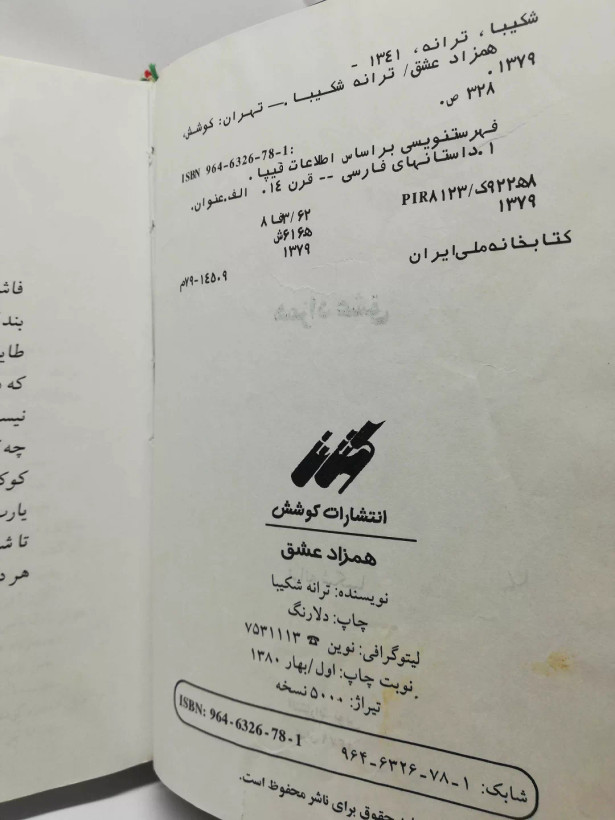 شکیبا، ترانه، ۱۳۴۱ -
همزاد عشق/ ترانه شکیبا.— تهران: کوشش،
۱۳۷۹.
۳۲۸ ص.
ISBN 964-6326-78-1:
فهرستنویسی براساس اطلاعات فیپا.
۱.داستانهای فارسی -- قرن ۱٤. الف.عنوان.
PIR۸۱۲۳/ک۹۲۲ﻫ۸
۱۳۷۹
۸فا۳/۶۲
ش۶۱۶ﻫ
۱۳۷۹
کتابخانه ملی ایران
م۷۹-۱٤۵۰۹
انتشارات کوشش
همزاد عشق
نویسنده: ترانه شکیبا
چاپ: دلارنگ
لیتوگرافی: نوین ☎ ۷۵۳۱۱۱۳
نوبت چاپ: اول/بهار ۱۳۸۰
تیراژ: ۵۰۰۰ نسخه
شابک: ۱-۷۸-۶۳۲۶-۹۶۴
ISBN: 964-6326-78-1
حقوق برای ناشر محفوظ است.
که
چه
تا
هر